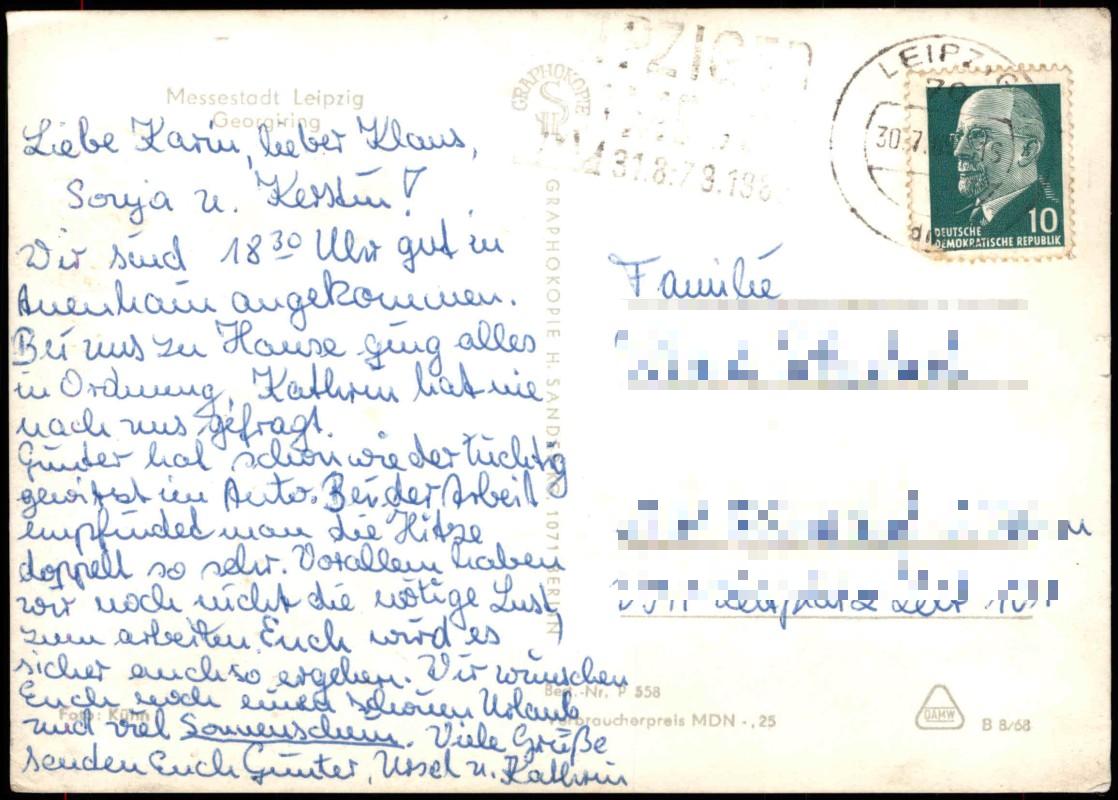 Messestadt Leipzig
Georgiring
Liebe Karin, lieber Klaus,
Sonja u. Kerstin!
Wir sind 18³⁰ Uhr gut in
Auenhain angekommen.
Bei uns zu Hause ging alles
in Ordnung, Kathrin hat nie
nach uns gefragt.
Günter hat schon wieder tüchtig
gewitzt im Auto. Bei der Arbeit
empfindet man die Hitze
doppelt so sehr. Vorallem haben
wir noch nicht die nötige Lust
zum arbeiten. Euch wird es
sicher auch so ergehen. Wir wünschen
Euch noch einen schönen Urlaub
und viel Sonnenschein. Viele Grüße
senden Euch Günter, Ursel u. Kathrin
Foto: Kühn
GRAPHOKOPIE
GRAPHOKOPIE H. SANDER KG 1071 BERLIN
31.8.-7.9.196
LEIPZIG
30.7.
10
DEUTSCHE
DEMOKRATISCHE REPUBLIK
Familie
Best.-Nr. P 558
Verbraucherpreis MDN -,25
DAMW
B 8/68